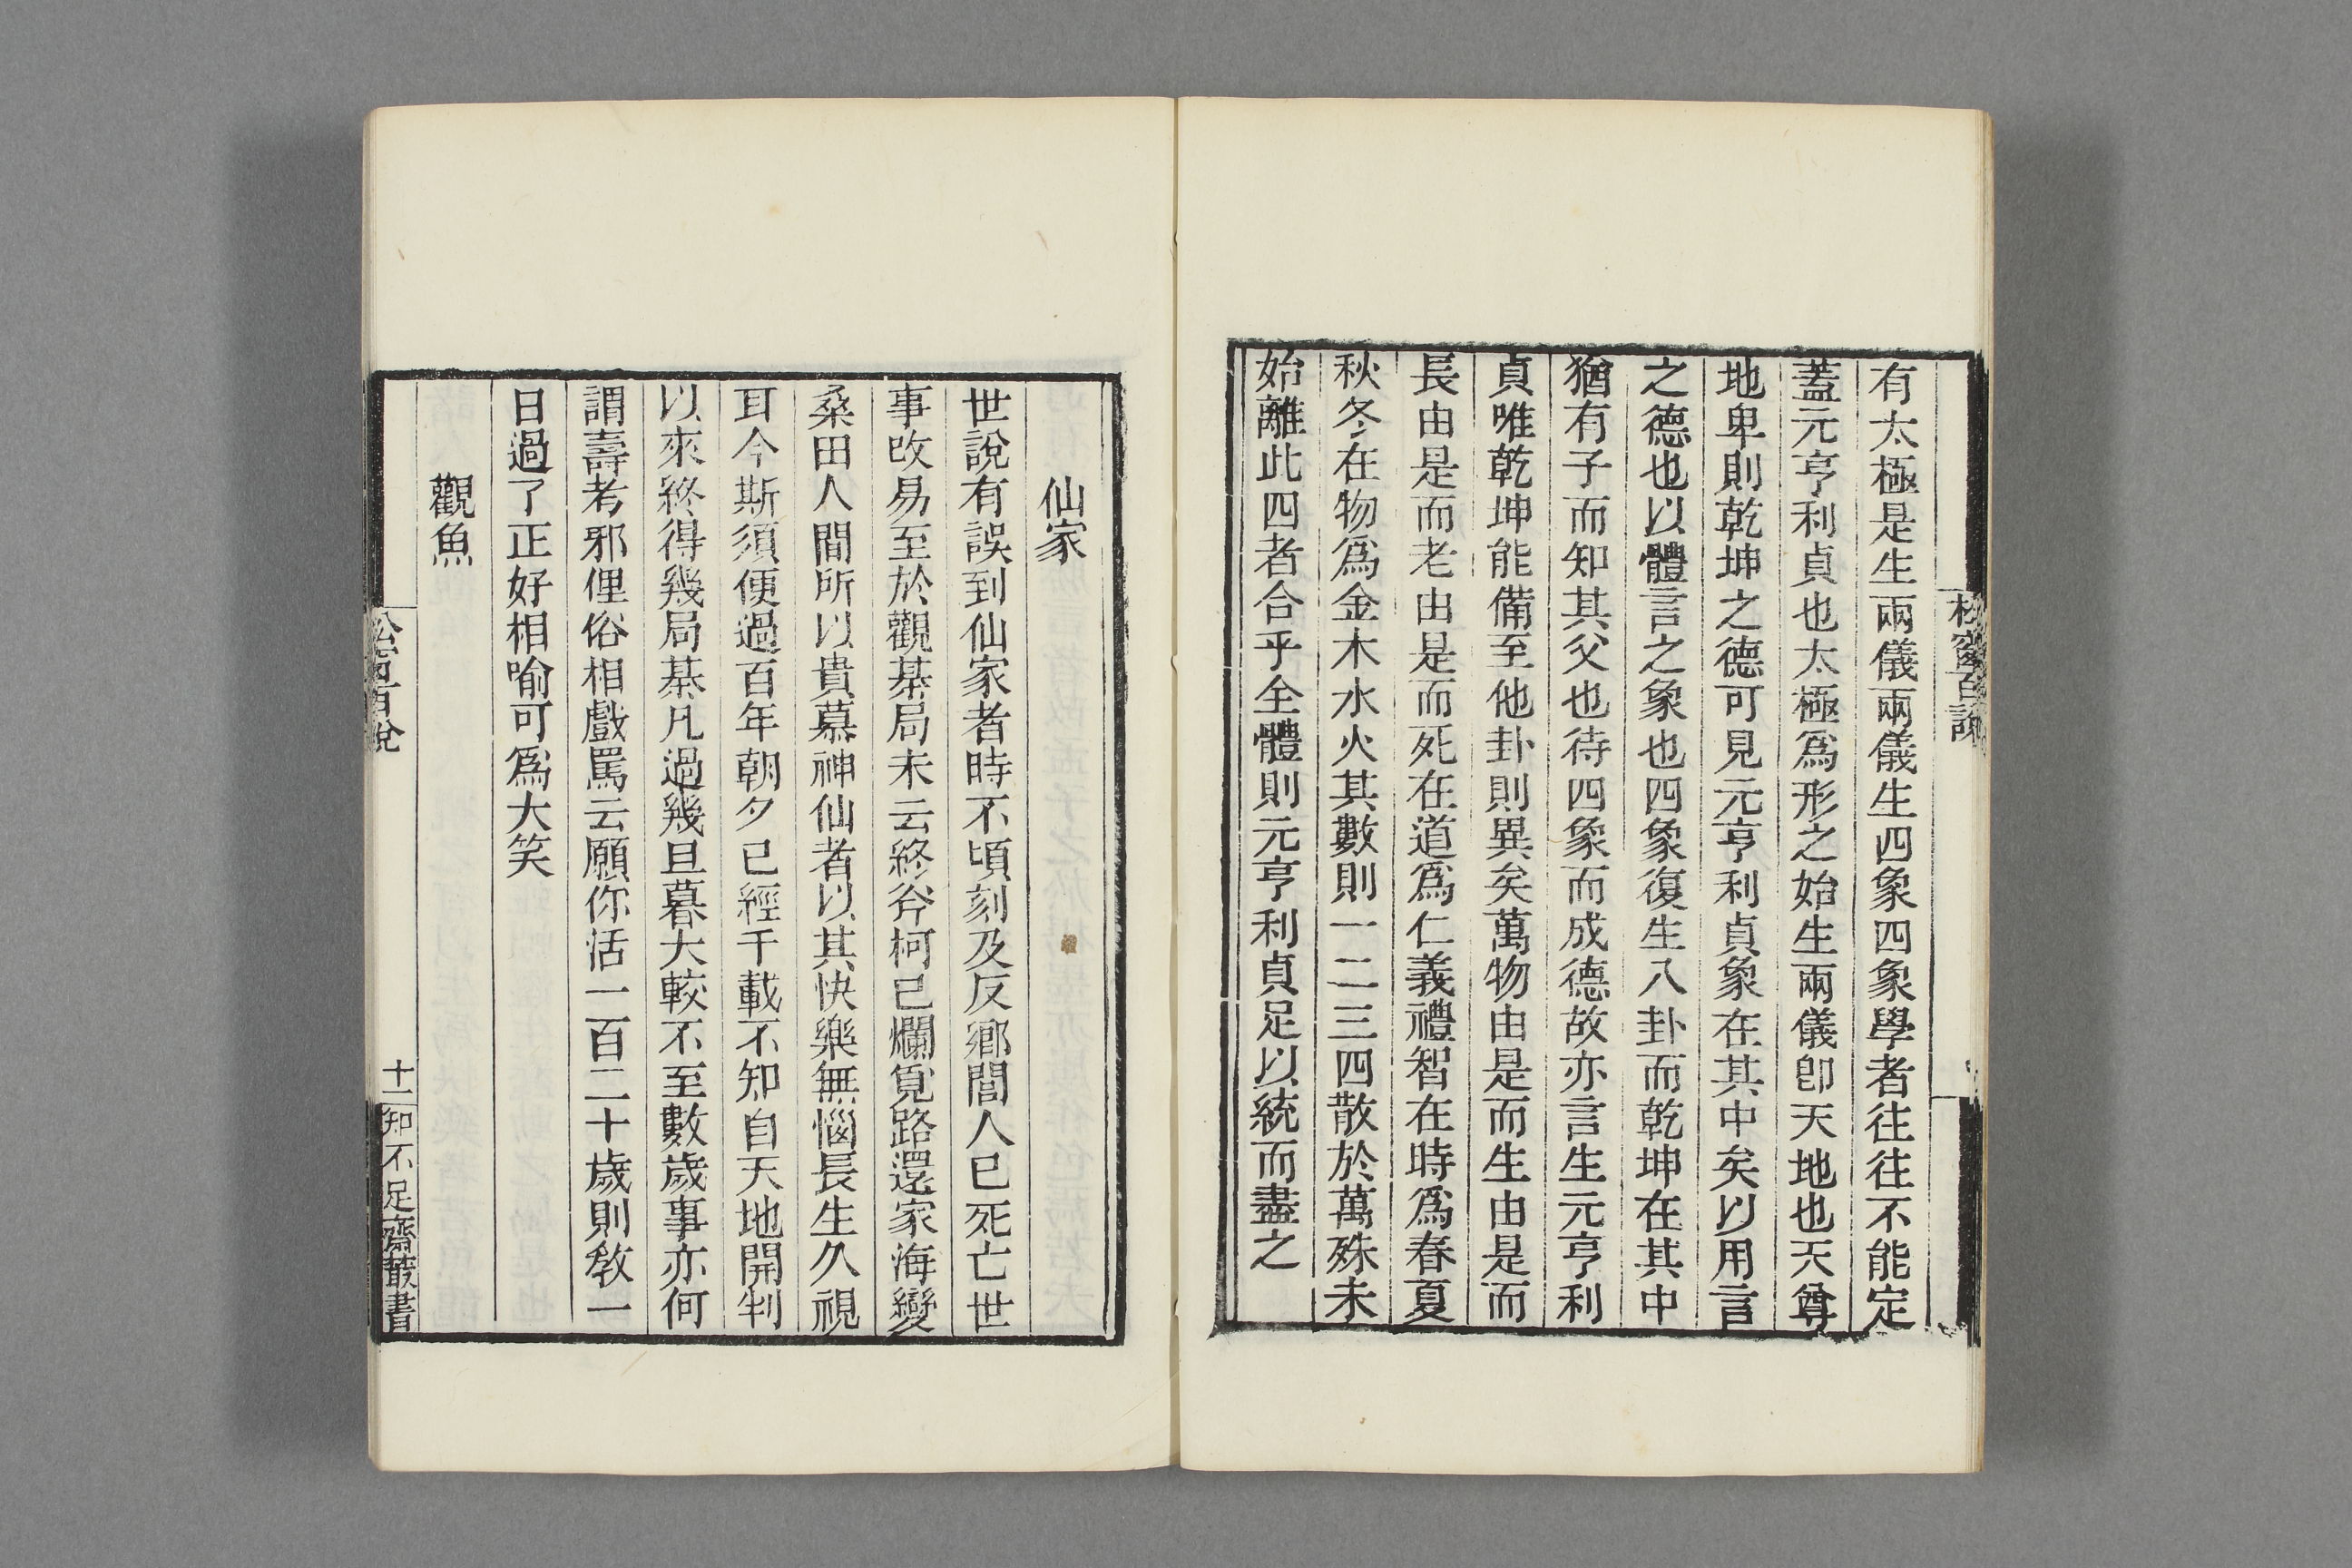 松窗百說
有太極是生兩儀兩儀生四象四象學者往往不能定
蓋元亨利貞也太極爲形之始生兩儀卽天地也天尊
地卑則乾坤之德可見元亨利貞象在其中矣以用言
之德也以體言之象也四象復生八卦而乾坤在其中
猶有子而知其父也待四象而成德故亦言生元亨利
貞唯乾坤能備至他卦則異矣萬物由是而生由是而
長由是而老由是而死在道爲仁義禮智在時爲春夏
秋冬在物爲金木水火其數則一二三四散於萬殊未
始離此四者合乎全體則元亨利貞足以統而盡之
仙家
世說有誤到仙家者時不頃刻及反鄉閭人已死亡世
事改易至於觀棊局未云終斧柯已爛覓路還家海變
桑田人間所以貴慕神仙者以其快樂無惱長生久視
耳今斯須便過百年朝夕已經千載不知自天地開判
以來終得幾局棊凡過幾旦暮大較不至數歲事亦何
謂壽考邪俚俗相戲罵云願你活一百二十歲則敎一
日過了正好相喻可爲大笑
觀魚
松窗百說
十一
知不足齋叢書